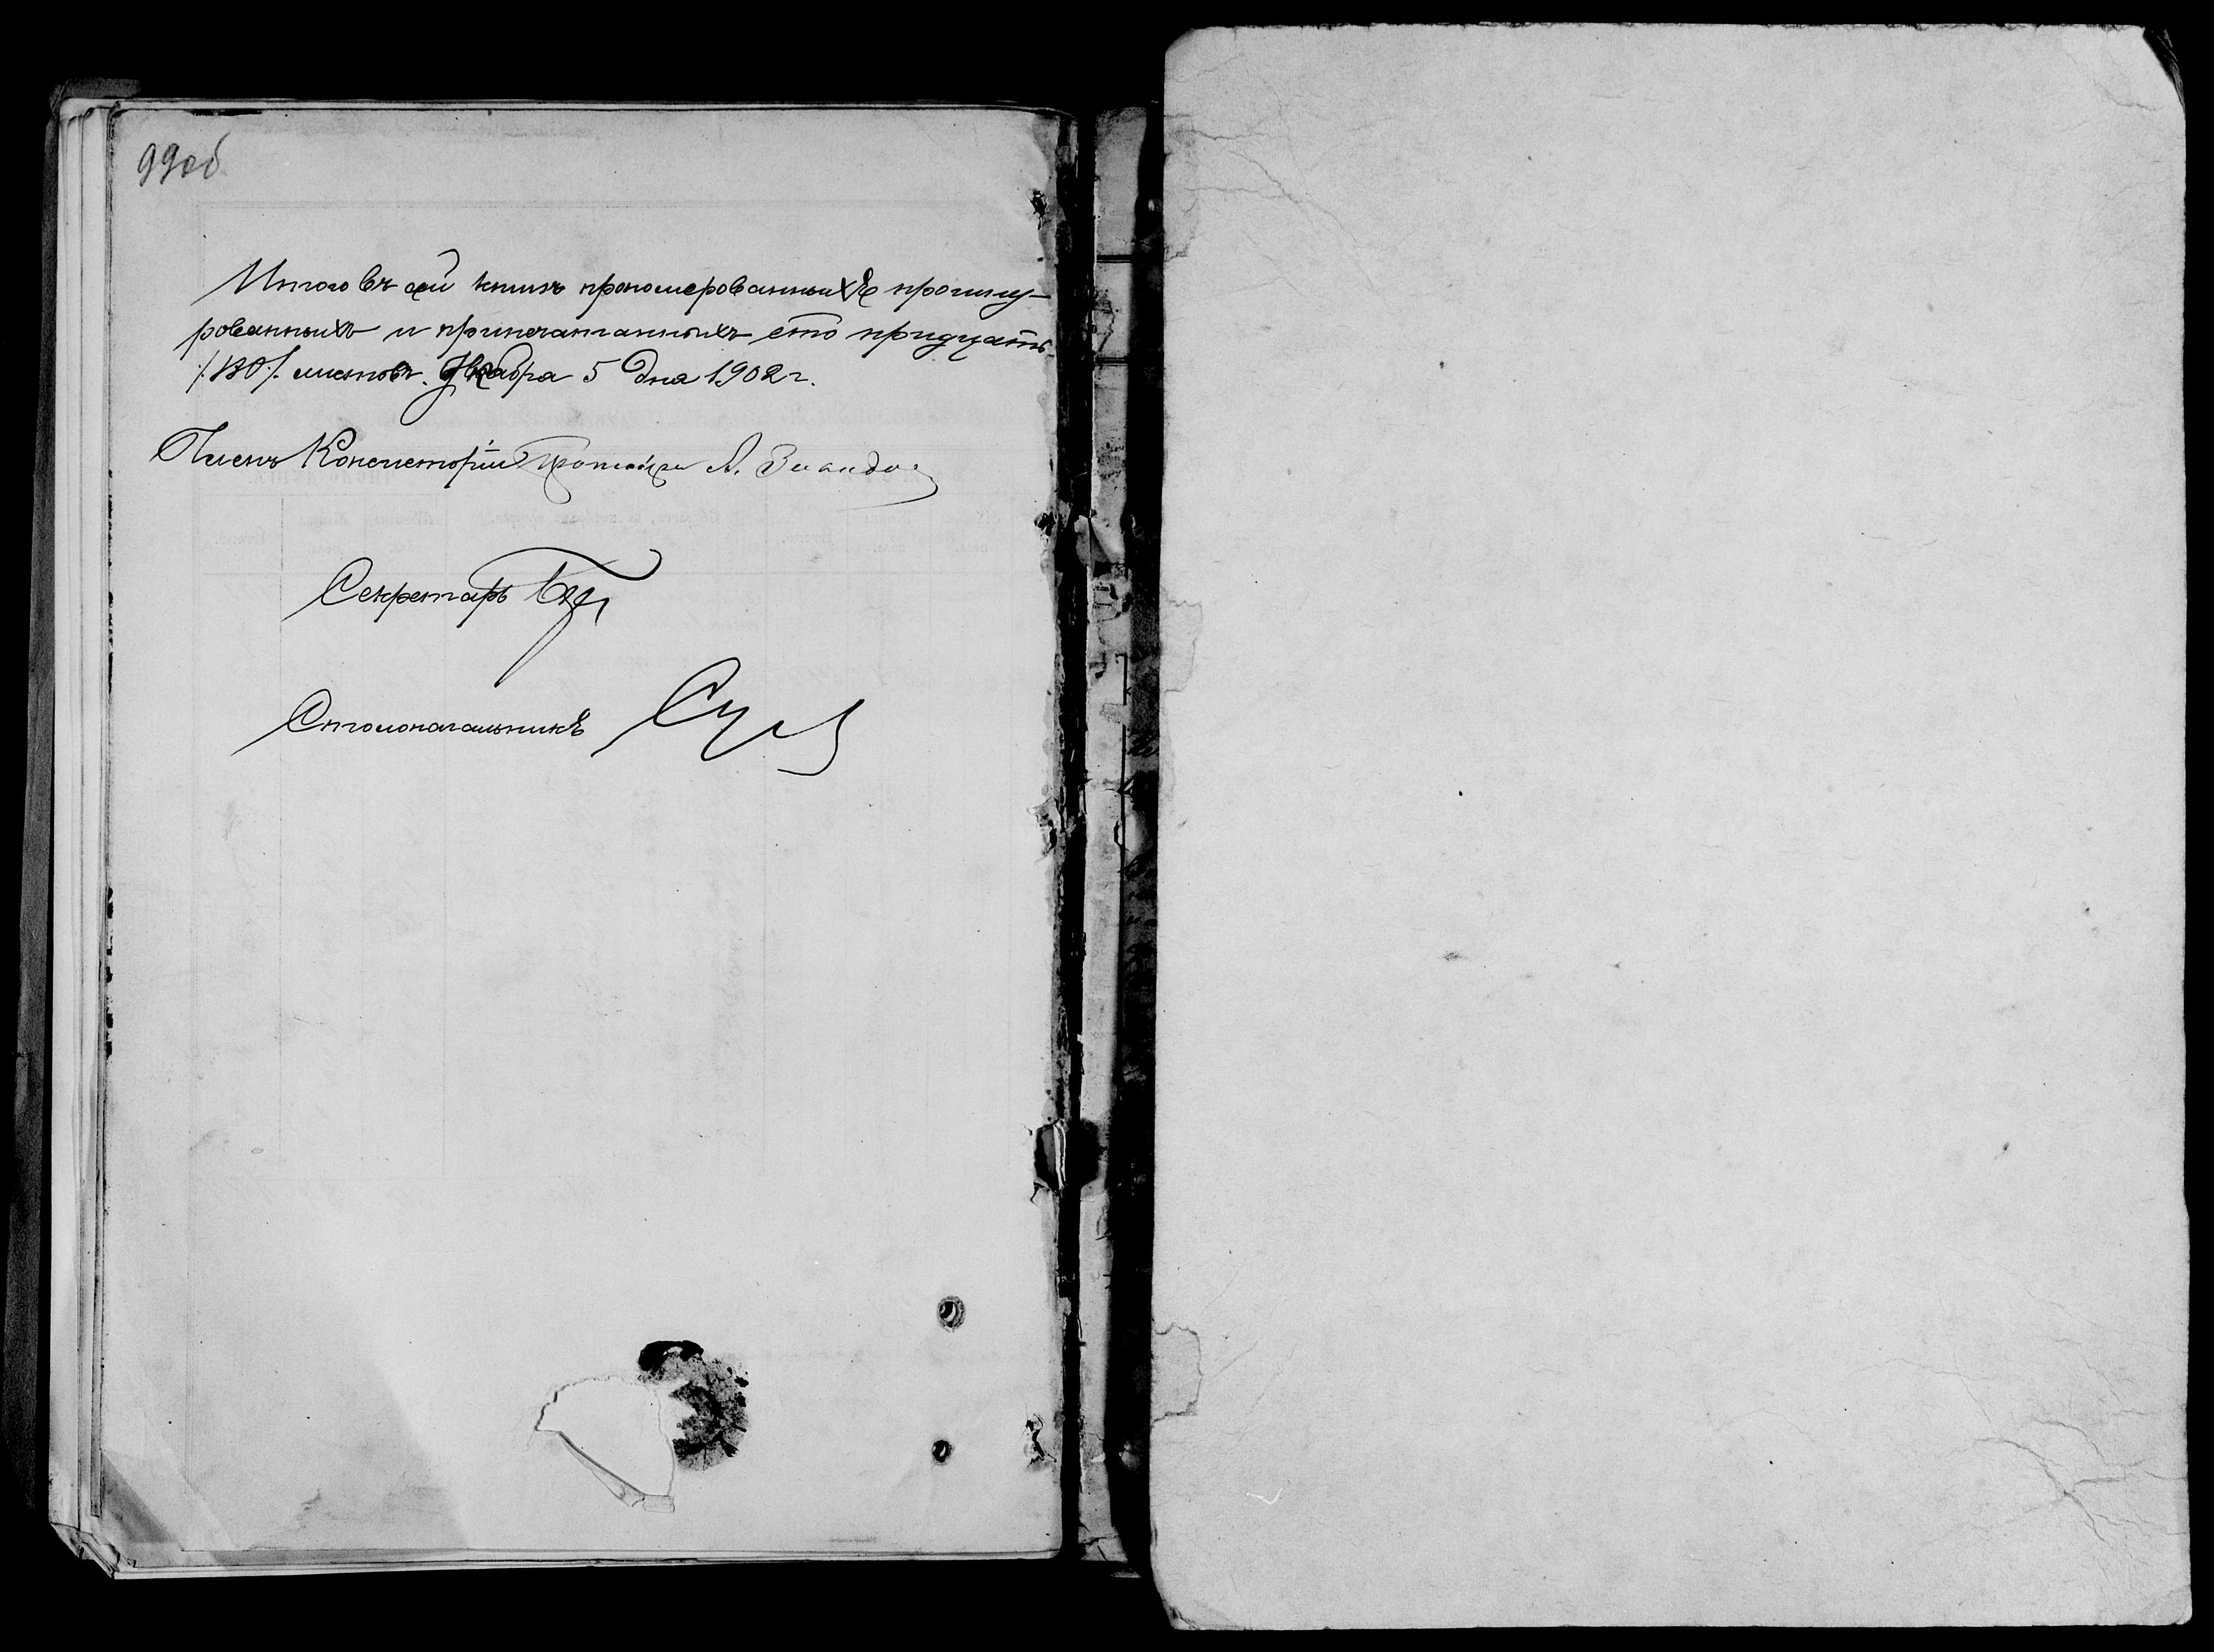 99об
Итого въ сей книгѣ прономерованныхъ прошну-
рованныхъ и припечатанныхъ сто тридцать
/:130:/ листовъ. Декабря 5 дня 1902 г.
Членъ Консисторіи Протоіерей А.
Секретарь
Столоначальникъ